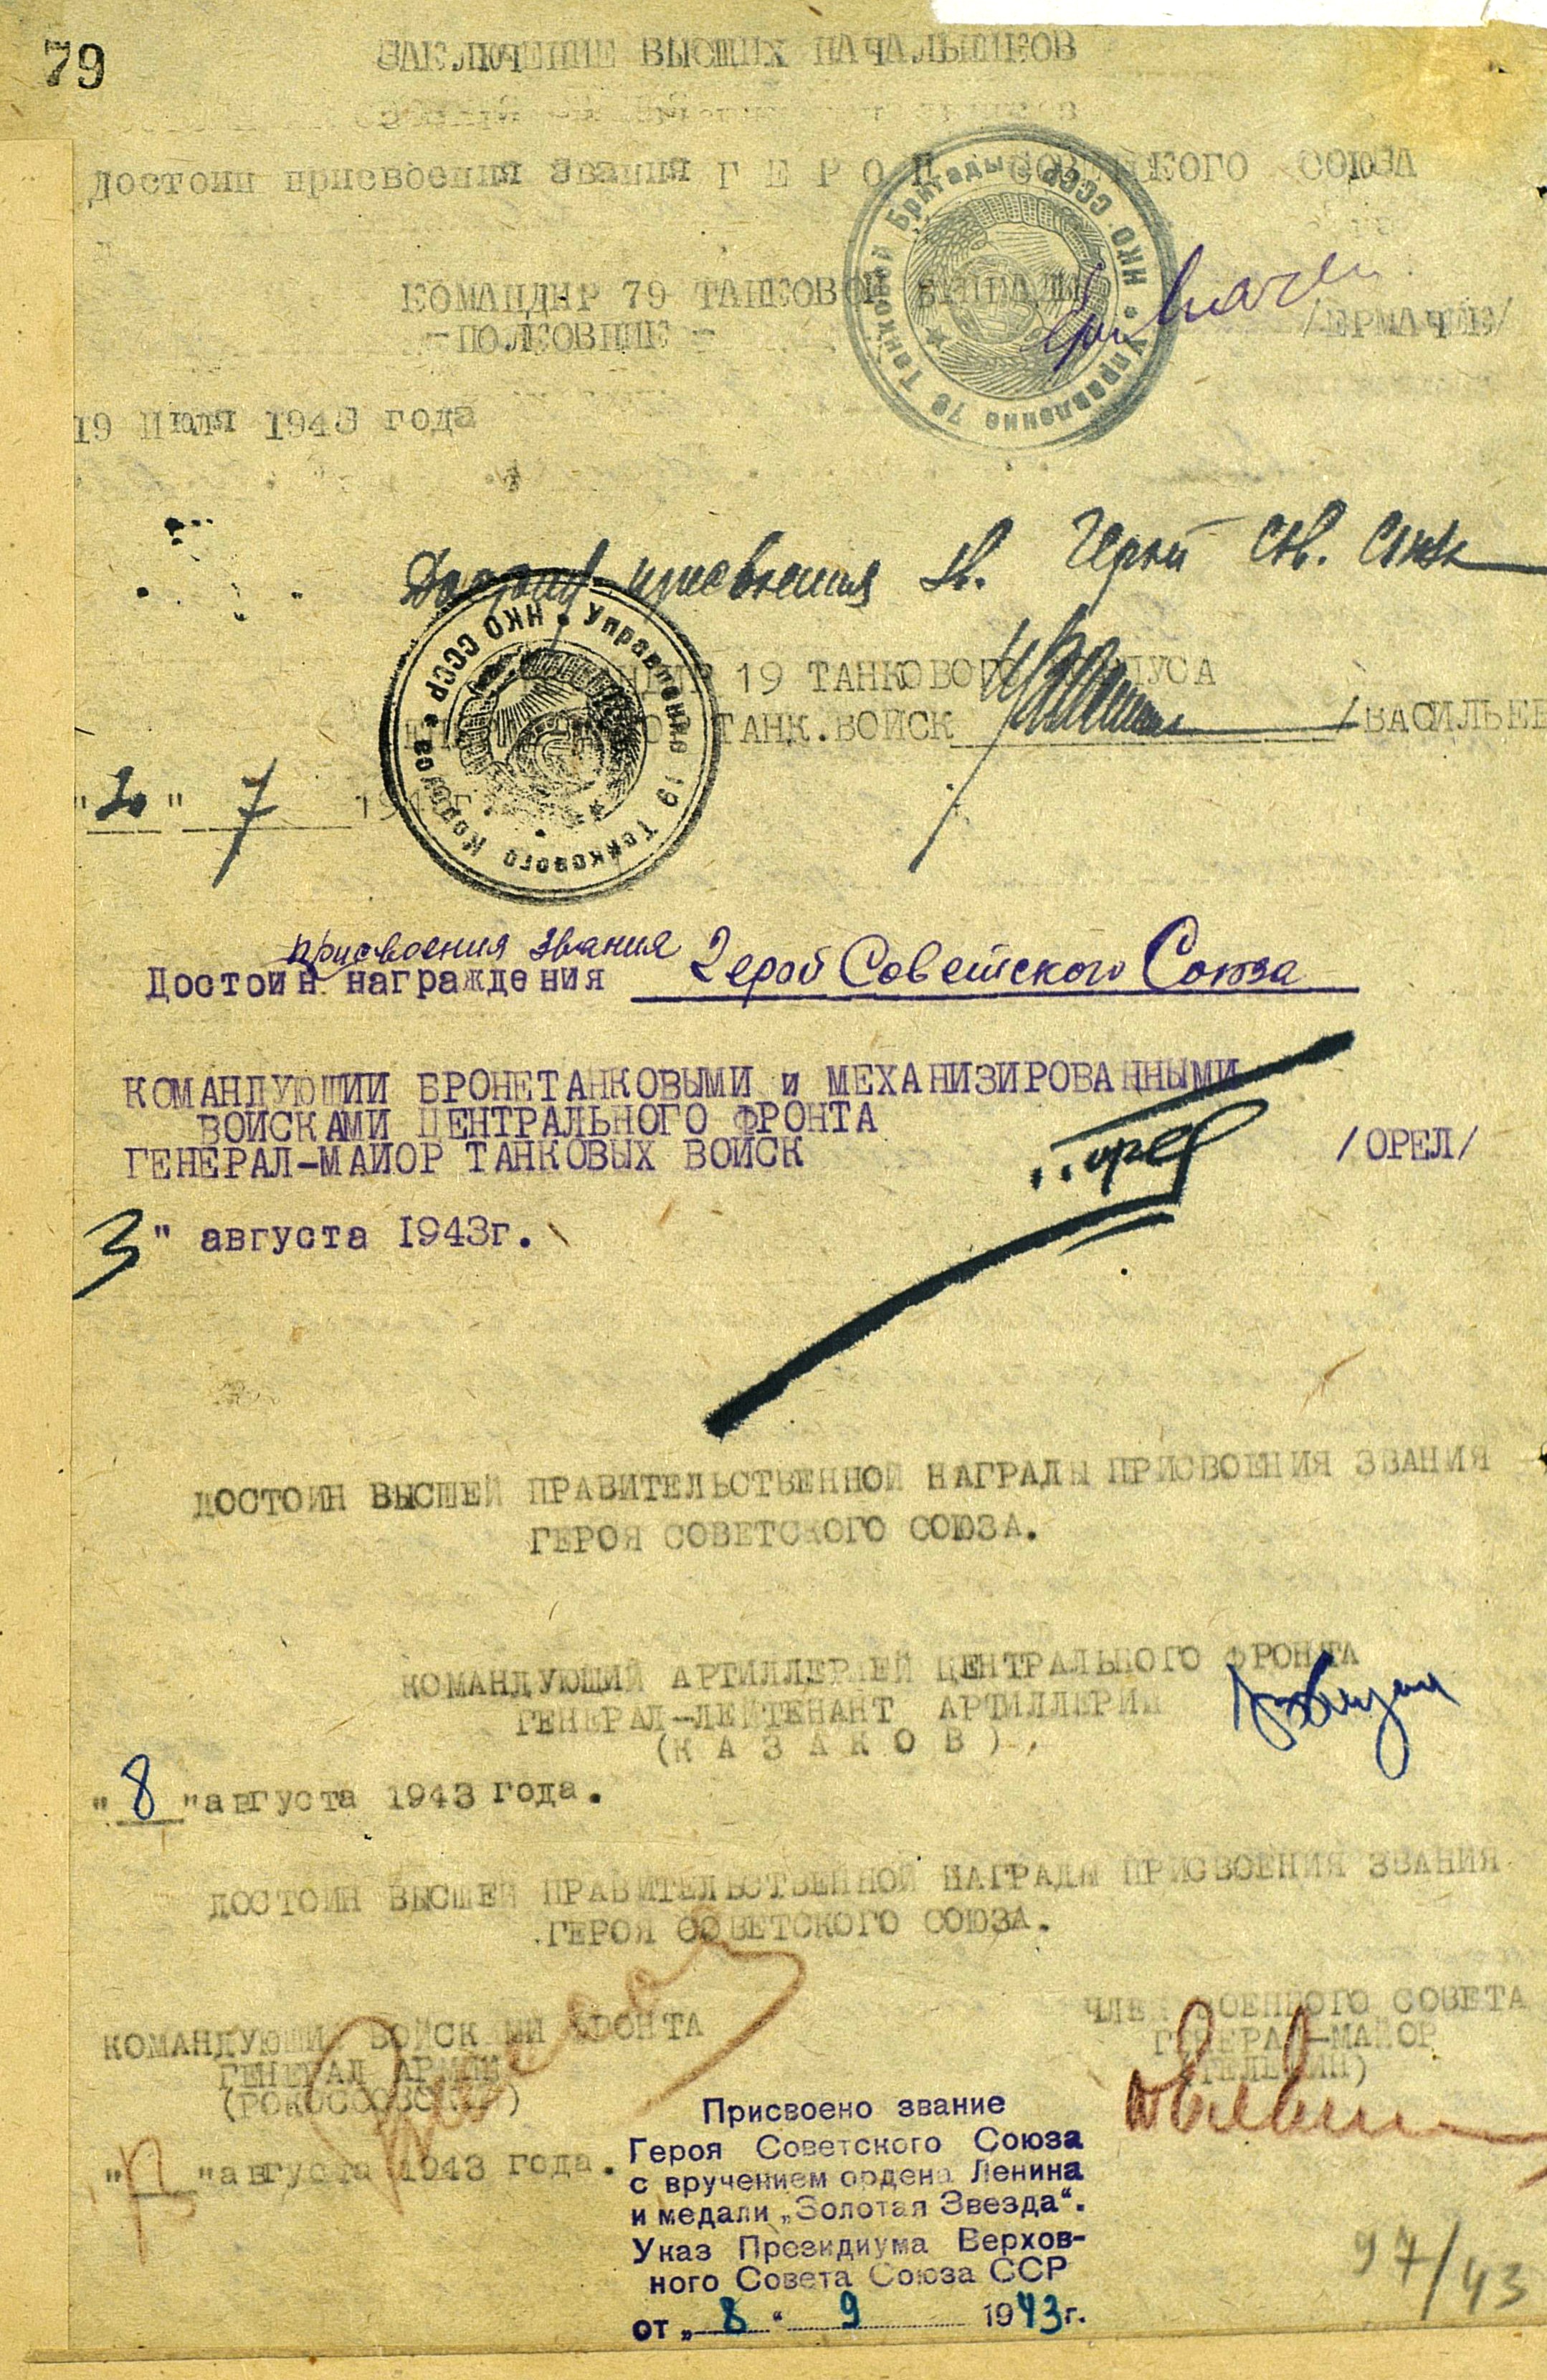 79
ЗАКЛЮЧЕНИЕ ВЫСШИХ НАЧАЛЬНИКОВ
достоин присвоения звания Г Е Р О Я СОВЕТСКОГО СОЮЗА
КОМАНДИР 79 ТАНКОВОЙ БРИГАДЫ
-ПОЛКОВНИК- /ЕРМАЧЕК/
Управление 79 Танковой Бригады • НКО СССР •
19 июля 1943 года
Достоин присвоения зв. Герой Сов. Союза
19 ТАНКОВОГО КОРПУСА
ТАНК.ВОЙСК /ВАСИЛЬЕВ
Управление 19 Танкового Корпуса • НКО СССР •
"20" 7 194 г
присвоения звания
Достоин награждения Герой Советского Союза
КОМАНДУЮЩИЙ БРОНЕТАНКОВЫМИ и МЕХАНИЗИРОВАННЫМИ
ВОЙСКАМИ ЦЕНТРАЛЬНОГО ФРОНТА
ГЕНЕРАЛ-МАЙОР ТАНКОВЫХ ВОЙСК /ОРЕЛ/
3" августа 1943г.
ДОСТОИН ВЫСШЕЙ ПРАВИТЕЛЬСТВЕННОЙ НАГРАДЫ ПРИСВОЕНИЯ ЗВАНИЯ
ГЕРОЯ СОВЕТСКОГО СОЮЗА.
КОМАНДУЮЩИЙ АРТИЛЛЕРИЕЙ ЦЕНТРАЛЬНОГО ФРОНТА
ГЕНЕРАЛ-ЛЕЙТЕНАНТ АРТИЛЛЕРИИ
(К А З А К О В)
"8"августа 1943 года.
ДОСТОИН ВЫСШЕЙ ПРАВИТЕЛЬСТВЕННОЙ НАГРАДЫ ПРИСВОЕНИЯ ЗВАНИЯ
ГЕРОЯ СОВЕТСКОГО СОЮЗА.
КОМАНДУЮЩИЙ ВОЙСКАМИ ФРОНТА
ГЕНЕРАЛ АРМИИ
(РОКОССОВСКИЙ)
ЧЛЕН ВОЕННОГО СОВЕТА
ГЕНЕРАЛ-МАЙОР
(ТЕЛЕГИН)
"августа 1943 года.
Присвоено звание
Героя Советского Союза
с вручением ордена Ленина
и медали „Золотая Звезда“.
Указ Президиума Верхов-
ного Совета Союза ССР
от „8“ 9 1943г.
97/43